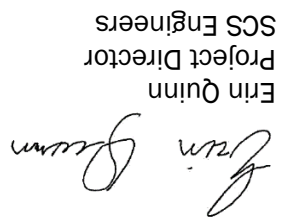 Erin Quinn
Erin Quinn
Project Director
SCS Engineers